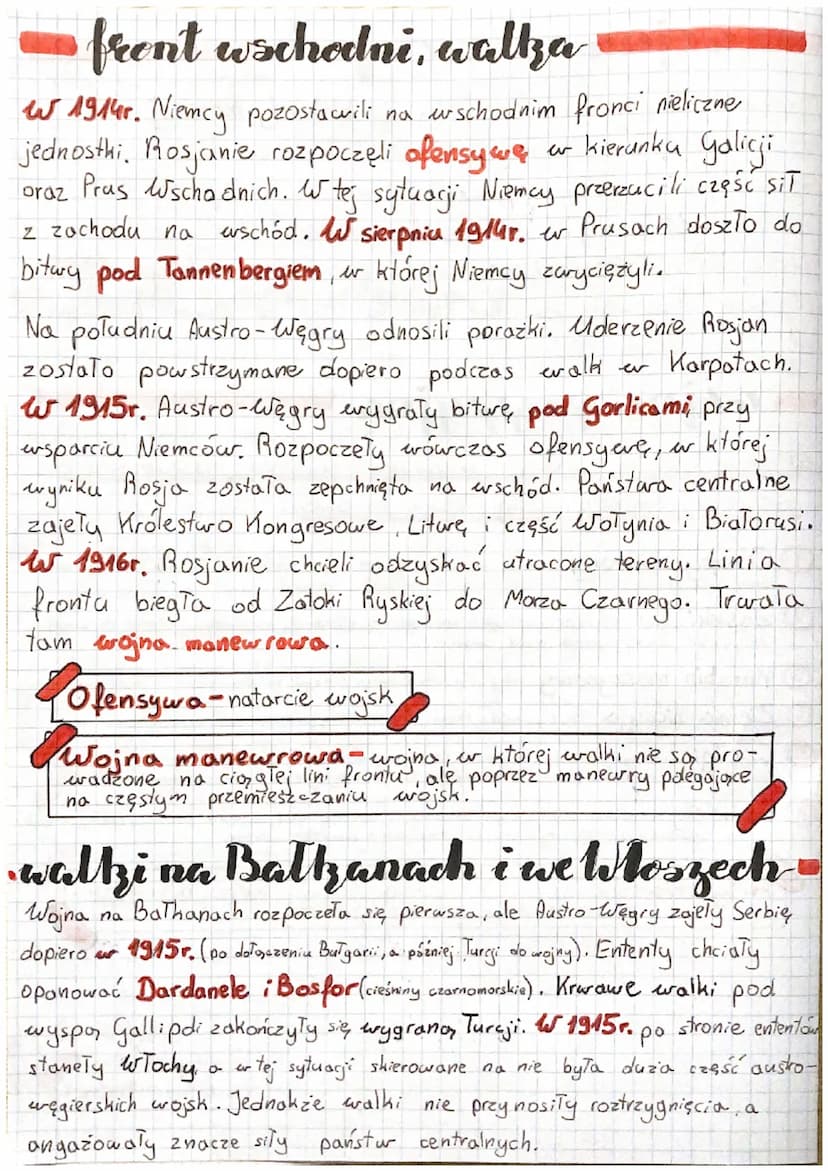 front wschodni, walka
W 1914r. Niemcy pozostawili na wschodnim fronci nieliczne
jednostki. Rosjanie rozpoczęli ofensywę w kierunku Galicji
oraz Prus Wschodnich. W tej sytuacji Niemcy przerzucili część sił
z zachodu na wschód. W sierpniu 1914r. w Prusach doszło do
bitwy pod Tannenbergiem, w której Niemcy zwyciężyli.
Na południu Austro-Węgry odnosili porażki. Uderzenie Rosjan
zostało powstrzymane dopiero podczas walk w Karpatach.
W 1915r. Austro-Węgry wygrały bitwę pod Gorlicami przy
wsparciu Niemców. Rozpoczęły wówczas ofensywę, w której
wyniku Rosja została zepchnięta na wschód. Państwa centralne
zajęły Królestwo Kongresowe, Litwę i część Wołynia i Białorusi.
W 1916r. Rosjanie chcieli odzyskać utracone tereny. Linia
frontu biegła od Zatoki Ryskiej do Morza Czarnego. Trwała
tam wojna manewrowa.
Ofensywa - natarcie wojsk
Wojna manewrowa - wojna, w której walki nie są pro-
wadzone na ciągłej lini frontu, ale poprzez manewry polegające
na częstym przemieszczaniu wojsk.
walki na Bałkanach i we Włoszech
Wojna na Bałkanach rozpoczęła się pierwsza, ale Austro-Węgry zajęły Serbię
dopiero w 1915r. (po dołączeniu Bułgarii, a później Turcji do wojny). Ententy chciały
opanować Dardanele i Bosfor (cieśniny czarnomorskie). Krwawe walki pod
wyspą Gallipoli zakończyły się wygraną Turcji. W 1915r. po stronie ententów
stanęły Włochy, a w tej sytuacji skierowane na nie była duża część austo-
węgierskich wojsk. Jednakże walki nie przynosiły roztrzygnięcia, a
angażowały znacze siły państw centralnych.